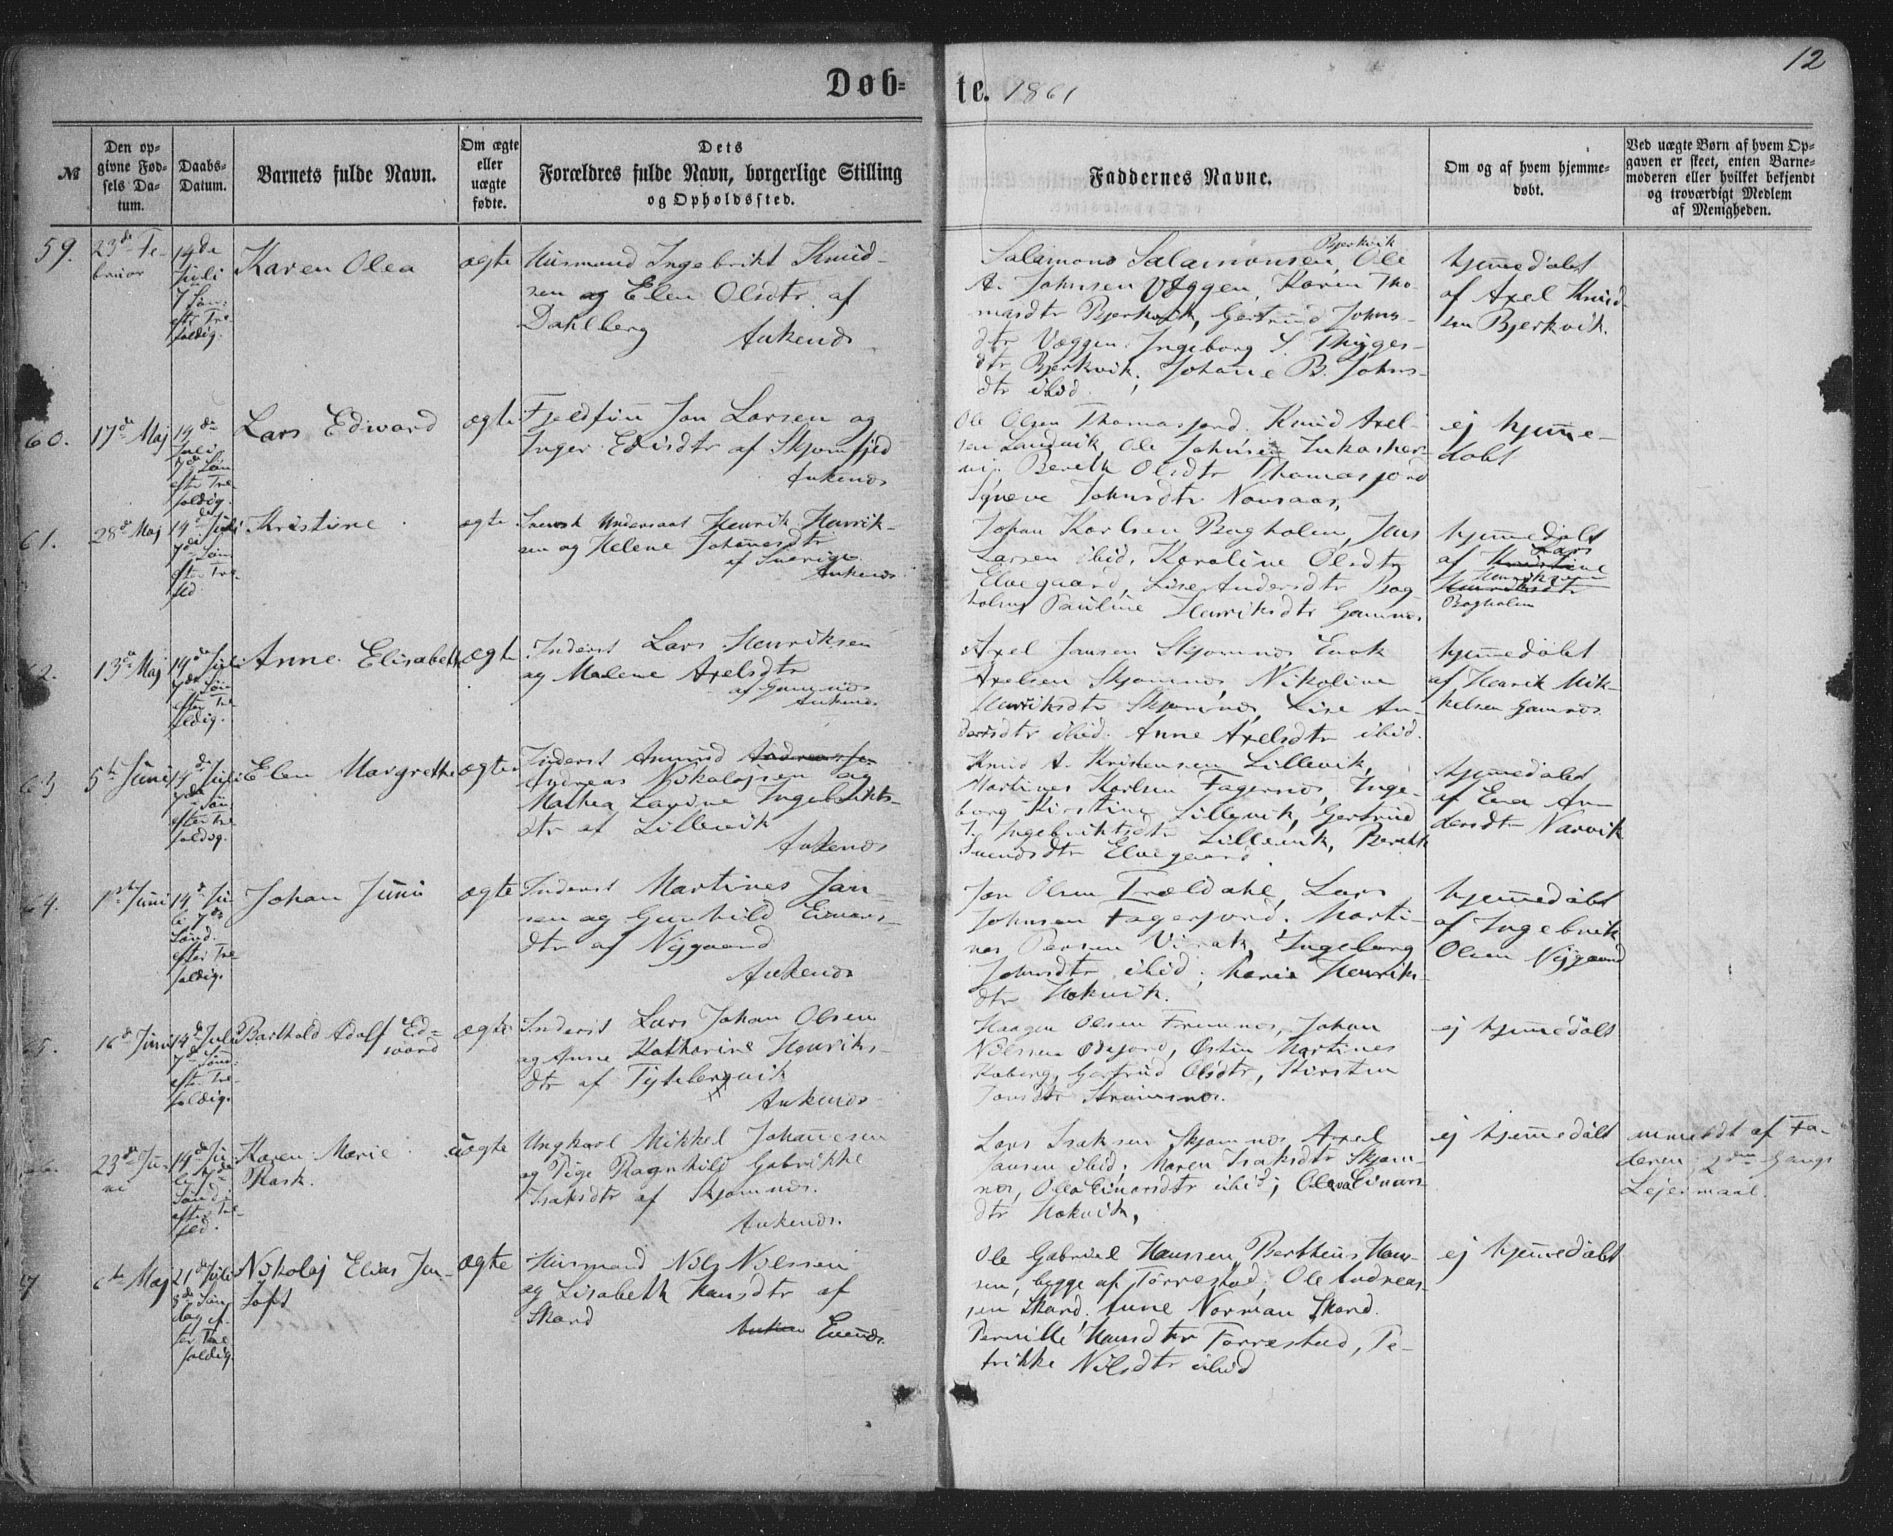 12
Døb=
te. 1861
№
Den op-
givne Fød-
sels Da-
tum.
Daabs-
Datum.
Barnets fulde Navn.
Om ægte
eller
uægte
fødte.
Dets
Forældres fulde Navn, borgerlige Stilling
og Opholdssted.
Faddernes Navne.
Om og af hvem hjemme-
døbt.
Ved uægte Børn af hvem Op-
gaven er skeet, enten Barne-
moderen eller hvilket bekjendt
og troværdigt Medlem
af Menigheden.
59.
23de Fe-
bruar
14de
Juli
7 Søn.
eftr Tre-
foldig.
Karen Olea
ægte
Husmand Ingebrikt Knud-
sen og Elen Olsdtr af
Dahlberg
Ankenes
Bjerkvik
Salamons Salamonsen, Ole
A. Johnsen Væggen, Karen Tho-
masdtr Bjerkvik, Gertrud Johns-
dtr Væggen. Ingeborg S. Thyges-
dtr Bjerkvik, Johane B. Johns-
dtr ibid.
hjemedøbt
af Axel Knud-
sen Bjerkvik.
60.
17de Maj
14de
Juli
7de Søn
efter Tre
foldig.
Lars Edward
ægte
Fjeldfin Jon Larsen og
Inger Edisdtr af Skjomfjed
Ankenes
Ole Olsen Thomasjord. Knud Axel-
sen Sandvik, Ole Johnsen
Bereth Olsdtr Thomasjord
Johnsdtr
ej hjemme-
døbt
61.
28de Maj
14de Juli
7de Søn
efter Tre
fld
Kristine
ægte
Svensk Undersaat Henrik Henrik-
sen og Helene Johanesdtr
af Sverige
Ankenes
Johan Karlsen Bogholm, Jens
Larsen ibid, Karoline Olsdtr
Elvegaard, Lise Andersdtr Bog-
holm, Pauline Henriksdtr Gamnes
hjemmedøbt
Lars
af Kristine
Henriksen
Henriksdtr
Bogholm
62.
13de Maj
14de Juli
7de Søn
efter Tre
foldig.
Anne Elisabeth
ægte
Inderst Lars Henriksen
og Malene Axelsdtr
af Gamnes
Ankenes
Axel Jansen Skjomnes Enok
Axelsen Skjomnes, Nikoline
Henriksdtr Skjomnes, Lise An-
dersdtr ibid. Anne Axelsdtr ibid.
hjemmedøbt
af Henrik Mik-
kelsen Gamnes.
63
5te Juni
14de Juli
7de Søn.
efter Tre
foldig.
Elen Margrethe
ægte
Inderst Amund Andreas Jo-
Andreas Nikolajsen og
Mathea Lavine Ingebrikts-
dtr af Lillevik
Ankenes
Knud A. Kristensen Lillevik,
Martines Karlsen Fagernes, Inge-
borg Kirstine Lillevik, Gertrud
J. Ingebriktsdtr Lillevik, Bereth
Svendsdtr Elvegaard
hjemedøbt
af Ena An-
dersdtr Narvik
64.
1ste Juni
14de Ju-
li 7de
Sønd.
efter Tre
foldig.
Johan Juni
ægte
Inderst Martines Jan-
sen og Gunhild Einars-
dtr af Nygaard
Ankenes
Jon Olsen Trældahl, Lars
Johnsen Fagerjord. Marti-
nes Persen Virak, Ingeborg
Johnsdtr ibid; Maria Henriks-
dtr Hokvik.
hjemmedøbt
af Ingebrik
Olsen Nygaard
65.
16de Juni
14de Juli
7de Sønd.
eftr Tre-
foldig.
Barthold Adolf Ed-
ward
ægte
Inderst Lars Johan Olsen
og Anne Katharine Henriks-
dtr af Tytebervik
Ankenes
Haagen Olsen Fremnes, Johan
Nilssen, Østen Martines
Gertrud Olsdtr, Kirsten
Jonsdtr Strømsnes.
ej hjemmedøbt
66.
23de Ju-
ni
14de Ju-
li 7de
Sønd.
efter Tre
fld.
Karen Marie
Kask.
uægte
Ungkarl Mikkel Johanesen
og Pige Ragnhild Gabrikke
Isaksdtr af Skjomnes.
Ankenes.
Lars Isaksen Skjomnes, Axel
Jansen ibid; Maren Isaksdtr Skjom-
nes, Olea Einarsdtr ibid; Oleva Einars-
dtr Hokvik,
ej hjemmedøbt
anmeldt af Fa-
deren; 2den Gangs
Lejermaal.
67
6te Maj
21de Juli
8de Søn
dag ef-
ter Tre
foldig.
Nikolaj Elias Jen-
toft
ægte
Husmand Nils Nilssen
og Lisabeth Hansdtr af
Skard
Anken Evenes.
Ole Gabriel Hanssen, Berthius Han-
sen, begge af Tørrestad, Ole Andreas-
sen Skard. Anne Norman Skard.
Pernille Hansdtr Tørrestad, Pe-
trikke Nilsdtr ibid
ej hjemmedøbt